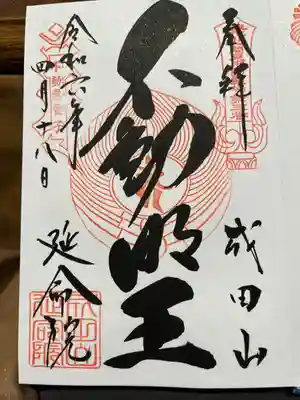 奉拝
成田山
不動明王
令和六年
四月十八日
延命院